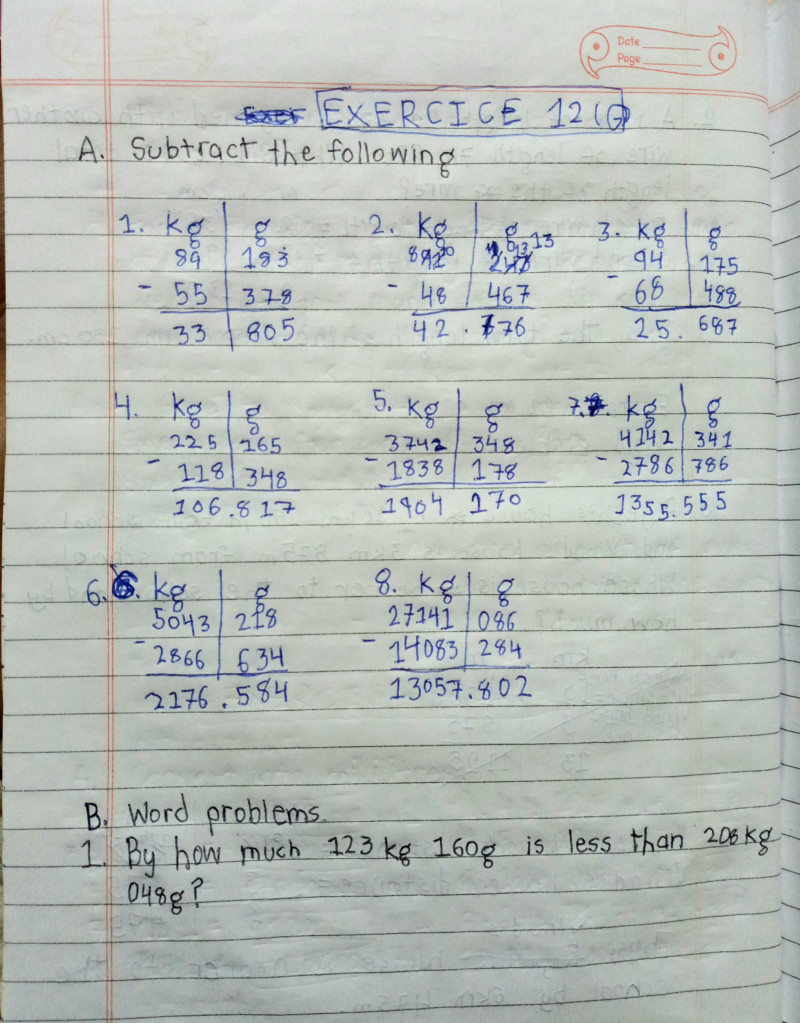 Date
Page
EXERCICE 12(G)
A. Subtract the following
1. kg g
89 183
- 55 378
33 805
2. kg g
- 48 467
42.776
3. kg g
94 175
- 68 488
25.687
4. kg g
225 165
- 118 348
106.817
5. kg g
3742 348
- 1838 178
1904 170
7. kg g
4142 341
- 2786 786
1355.555
6. kg g
5043 218
- 2866 634
2176.584
8. kg g
27141 086
- 14083 284
13057.802
B. Word problems.
1. By how much 123 kg 160g is less than 208 kg
048g?